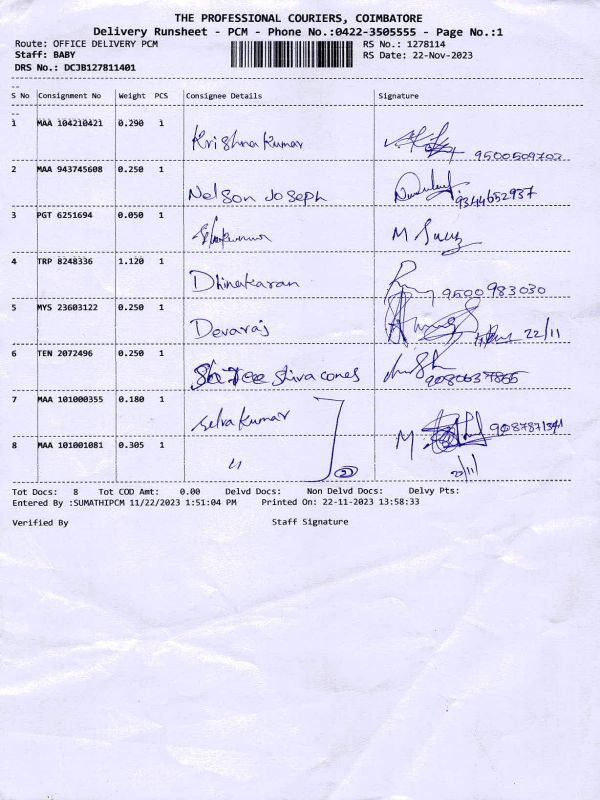 THE PROFESSIONAL COURIERS, COIMBATORE
Delivery Runsheet - PCM - Phone No.:0422-3505555 - Page No.:1
Route: OFFICE DELIVERY PCM RS No.: 1278114
Staff: BABY RS Date: 22-Nov-2023
DRS No.: DCJB127811401
S No Consignment No Weight PCS Consignee Details Signature
1 MAA 104210421 0.290 1 Krishna Kumar 9500509703
2 MAA 943745608 0.250 1 Nelson Joseph 9344652937
3 PGT 6251694 0.050 1 M
4 TRP 8248336 1.120 1 Dhinakaran 9500983030
5 MYS 23603122 0.250 1 Devaraj 22/11
6 TEN 2072496 0.250 1 Shree Shiva cones
7 MAA 101000355 0.180 1 Selva Kumar M
8 MAA 101001081 0.305 1 " 2 22/11
Tot Docs: 8 Tot COD Amt: 0.00 Delvd Docs: Non Delvd Docs: Delvy Pts:
Entered By :SUMATHIPCM 11/22/2023 1:51:04 PM Printed On: 22-11-2023 13:58:33
Verified By Staff Signature